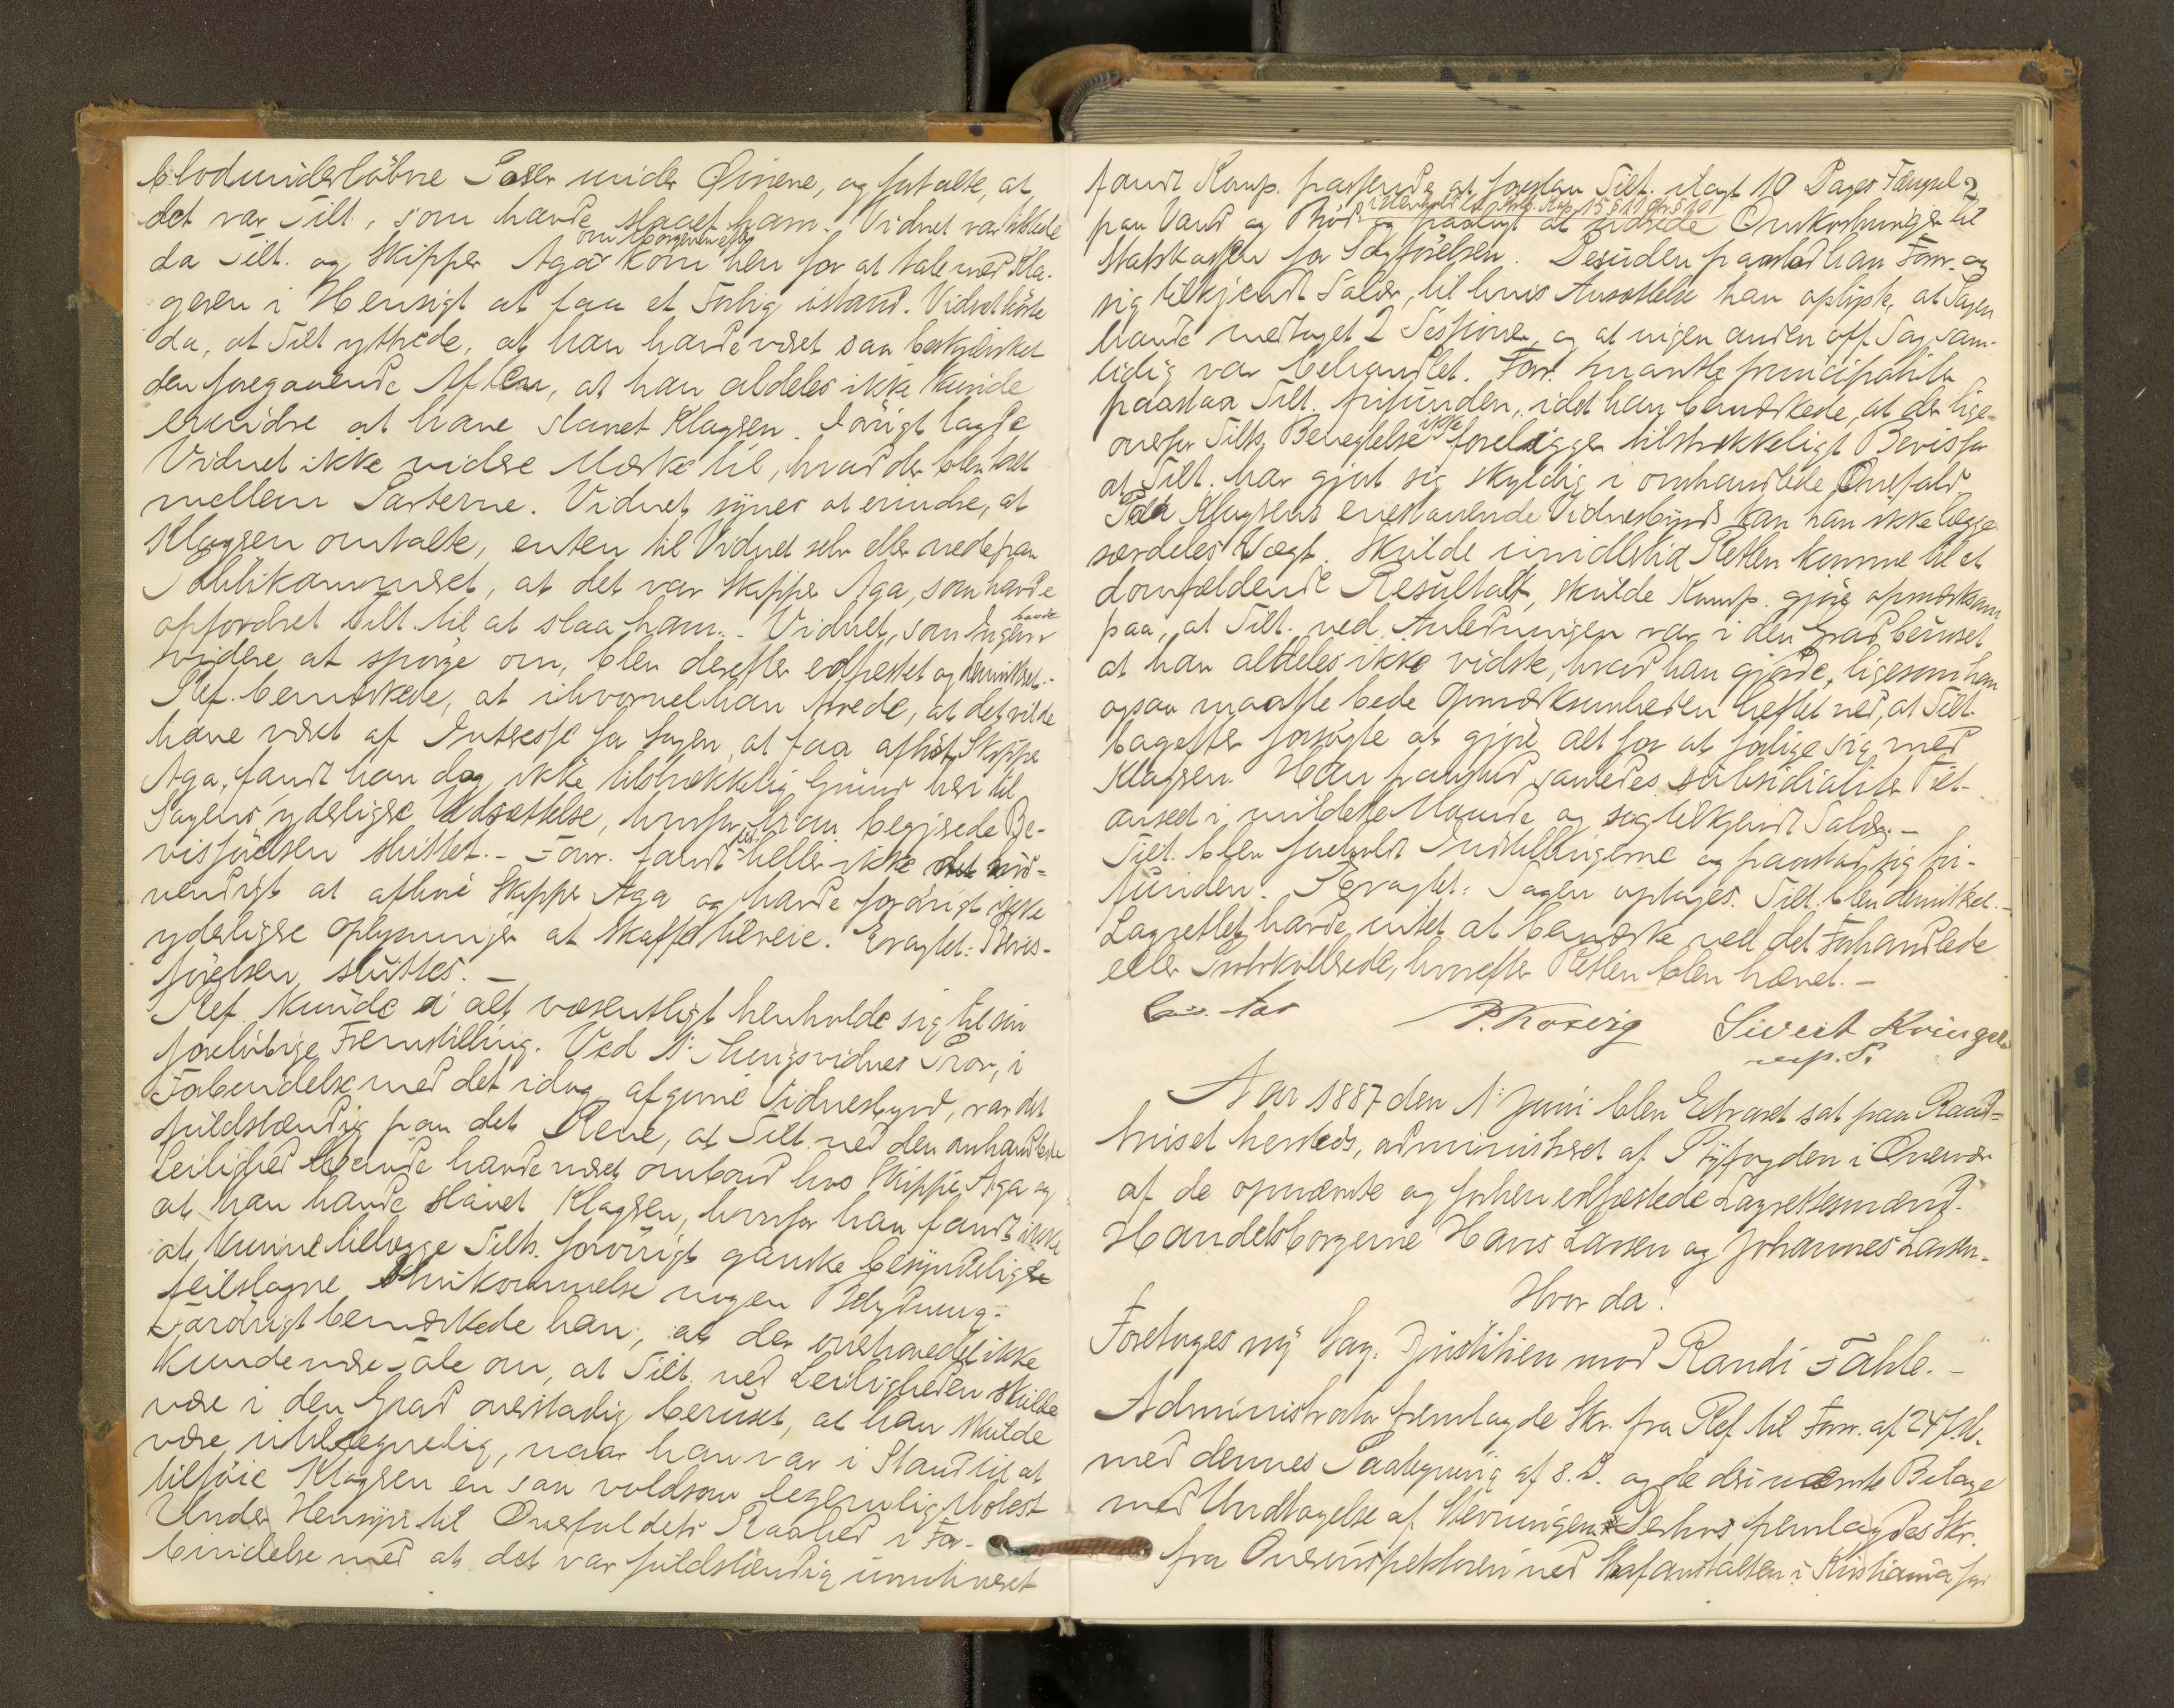 blodunderløbne Poser under Øinene, og fortalte, at
det var Tilt., som havde slaaet ham. Vidnet var tilstede
da Tilt. og Skipper Aga om Morgenen efter kom hen for at tale med Kla-
geren i Hensigt at faa et Forlig istand. Vidnet hørte
da, at Tilt yttrede, at han havde været saa beskjænket
den foregaaende Aften, at han aldeles ikke kunde
erindre at have slaaet Klageren. Iøvrigt lagde
Vidnet ikke videre Mærke til, hvad der blev talt
mellem Parterne. Vidnet synes at erindre, at
Klageren omtalte, enten til Vidnet selv eller nede paa
Politikammeret, at det var Skipper Aga, som havde
opfordret Tilt. til at slaa ham. - Vidnet, som Ingen havde
videre at spørge om, blev derefter edfæstet og demitteret. -
Ref. bemærkede, at ihvorvel han troede, at det vilde
have været af Interesse for Sagen at faa afhørt Skipper
Aga, fandt han dog ikke tilstrækkelig Grund heri til
Sagens yderligere Udsættelse, hvorfor han begjærede Be-
visførelsen sluttet. - Forsv. fandt det heller ikke nød-
vendigt at afhøre Skipper Aga og havde forøvrigt ikke
yderligere Oplysninger at skaffe tilveie. Eragtet: Bevis-
førelsen sluttes. -
Ref. kunde i alt væsentligt henholde sig til sin
foreløbige Fremstilling. Ved 1ste Thingsvidnes Prov, i
Forbindelse med det idag afgivne Vidnesbyrd, var det
fuldstændig paa det Rene, at Tilt. ved den omhandlede
Leilighed havde været ombord hos Skipper Aga og
at han havde slaaet Klageren, hvorfor han fandt ikke
at kunne tillægge Tilts. forøvrigt ganske besynderlige
feilslagne Hukommelse nogen Betydning.
Forøvrigt bemærkede han, at der overhovedet ikke
kunde være Tale om, at Tilt. ved Leiligheden skulde
være i den Grad overstadig beruset, at han skulde
være utilregnelig, naar han var i Stand til at
tilføie Klageren en saa voldsom legemlig Molest
Under Hensyn til Overfaldets Raahed i For-
bindelse med at det var fuldstændig umotiveret
fandt Komp. passende at foreslaa Tilt. ilagt 10 Dages Fængsel
paa Vand og Brød og paalagt at udrede Omkostninger til
Statskassen for Sagførelsen. Desuden paastod han Forsv. og
sig tilkjendt Salær, til hvis Ansættelse han oplyste, at Sagen
havde medtaget 2 Sessioner, og at ingen anden off. Sag sam-
tidig var behandlet. Forsv. maatte principaliter
paastaa Tilt. frifunden, idet han bemærkede, at der lige-
overfor Tilts. Benegtelse ikke foreligger tilstrækkeligt Bevis for
at Tilt. har gjort sig skyldig i omhandlede Overfald.
Paa Klagerens enestaaende Vidnesbyrd kan han ikke lægge
særdeles Vægt. Skulde imidlertid Retten komme til et
domfældende Resultat, skulde Komp. gjøre opmærksom
paa, at Tilt. ved Anledningen var i den Grad beruset
at han aldeles ikke vidste, hvad han gjorde, ligesom han
ogsaa maatte bede Opmærksomheden heftet ved, at Tilt.
bagefter forsøgte at gjøre alt for at forlige sig med
Klageren. Han paastod saaledes subsidialiter Tilt.
anseet i mildeste Maade og sig tilkjendt Salær. -
Tilt. blev foreholdt Indstillingerne og paastod sig fri-
funden. Eragtet: Sagen optages. Tilt. blev demitteret. -
Lagrettet havde intet at bemærke ved det Forhandlede
eller Protokollerede, hvorefter Retten blev hævet. -
P. Koren Sivert Kvinge
m. p. P.
Aar 1887 den 1ste Juni blev Extraret sat paa Raad-
huset hersteds, administreret af Byfogden i Overvær
af de opnævnte og forhen edfæstede Lagrettesmænd.
Handelsborgerne Hans Larsen og Johannes Larsen.
Hvor da:
Foretoges ny Sag: Justitien mod Randi Fahle. -
Administrator fremlagde Skr. fra Ref til Forsv. af 24 f. M.
med dennes Paategning af s. D. og de deri nævnte Bilage
med Undtagelse af Stevningen. Derhos fremlagdes Skr.
fra Overinspektøren ved Strafanstalten i Kristiania for